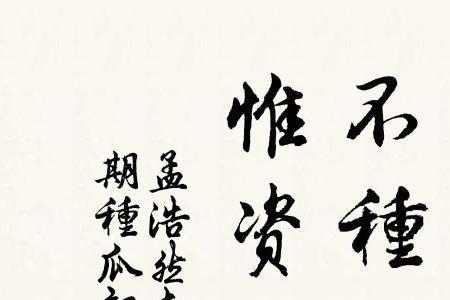 不種
惟資
孟浩然
期種瓜